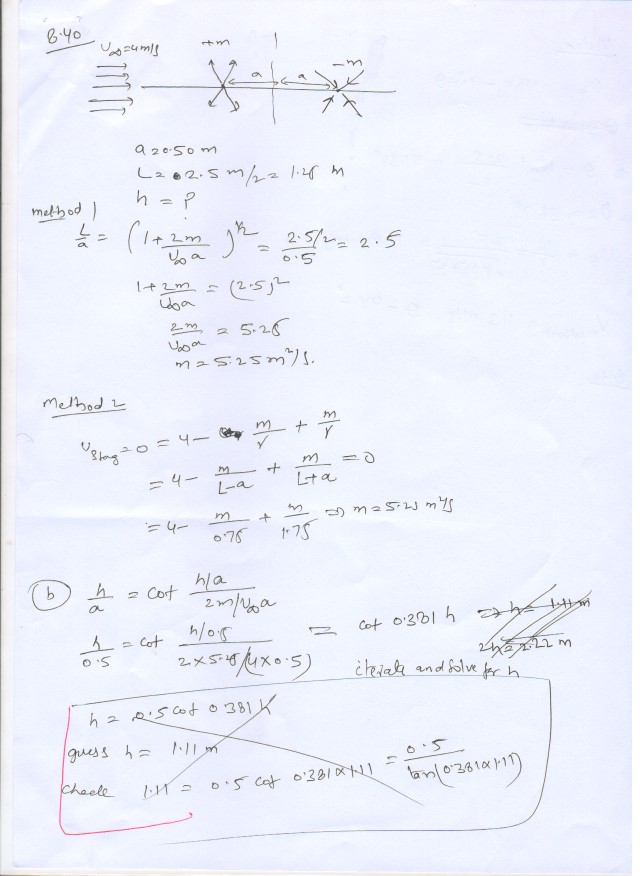 8.40
U∞=4m/s
+m
-m
a
a
a=0.50 m
L= 2.5 m/2 = 1.25 m
h = ?
method 1
L/a = (1+ 2m/U∞a)^½ = 2.5/2/0.5 = 2.5
1+ 2m/U∞a = (2.5)²
2m/U∞a = 5.25
m = 5.25 m²/s.
Method 2
Ustag = 0 = 4 - m/r + m/r
= 4 - m/L-a + m/L+a = 0
= 4 - m/0.75 + m/1.75 => m = 5.25 m²/s
(b) h/a = cot h/a / 2m/U∞a
h/0.5 = cot h/0.5 / 2×5.25/(4×0.5) = cot 0.381 h => h = 1.11 m
2h = 2.22 m
iterate and solve for h
h = 0.5 cot 0.381 h
guess h = 1.11 m
check 1.11 = 0.5 cot 0.381×1.11 = 0.5/tan(0.381×1.11)